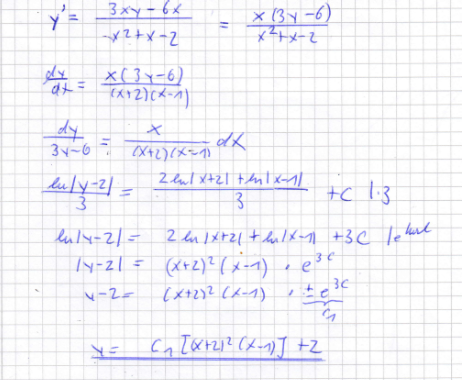 y' = (3xy - 6x)/(-x² + x - 2) = x(3y-6)/(x² + x - 2)
dy/dx = x(3y-6)/((x+2)(x-1))
dy/(3y-6) = x/((x+2)(x-1)) dx
ln|y-2|/3 = (2ln|x+2| + ln|x-1|)/3 + C |·3
ln|y-2| = 2 ln|x+2| + ln|x-1| + 3C |e
|y-2| = (x+2)² (x-1) · e^3C
y-2 = (x+2)² (x-1) · ±e^3C
C₁
y = C₁ [(x+2)² (x-1)] + 2